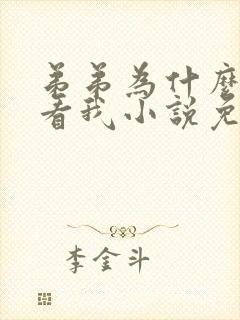 弟弟為什麼
看我小說免
李金斗